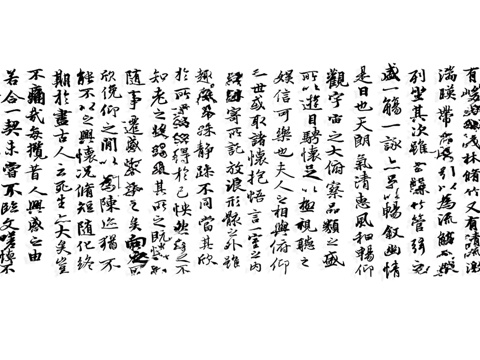 有林脩竹又有清流激
湍暎帶引以為流觴
列坐其次雖竹管弦
盛一觴一詠足以暢敘幽情
是日也天朗氣清惠風和暢仰
觀宇宙之大俯察品類之盛
所以遊目騁懷足以極視聽之
娛信可樂也夫人之相與俯仰
一世或取諸懷抱悟言一室之內
寄所託放浪形骸之外雖
趣殊靜躁不同當其欣
於所得於己怏然之不
知老之其所之既
隨事遷感之矣
欣俛仰之間以為陳迹猶不
能不以之興懷況脩短隨化終
期於盡古人云死生亦大矣豈
不痛哉每攬昔人興感之由
若合一契未嘗不臨文嗟悼不